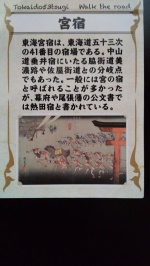 Tokaido53tsugi Walk the road
宮宿
東海宮宿は、東海道五十三次
の41番目の宿場である。中山
道垂井宿にいたる脇街道美
濃路や佐屋街道との分岐点
でもあった。一般には宮の宿
と呼ばれることが多かった
が、幕府や尾張藩の公文書で
は熱田宿と書かれている。